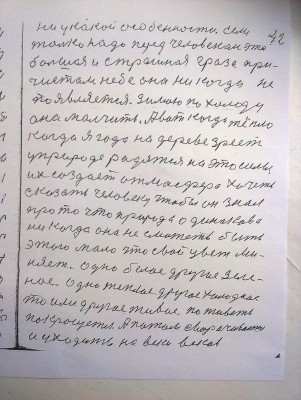 42
ни у какой особенности. Сели
только надо пред человеком это
большая и страшная гроза при
чистом небе она никогда не
появляется. Зимою по холоду
она молчить. А вот когда тёпло
когда ягода на дереве зреет
у природе радятся на это силы
их создает отмасфера хочеть
сказать человеку чтобы он знал
про то что природа одинакова
никогда она не сможеть быть
этого мало это свой цвет ме-
няет. Одно белое другое зеле-
ное. Одно теплое другое холодное
то или другое живое по
покрасуеться. А потом сварачивается
и уходить на веки веков